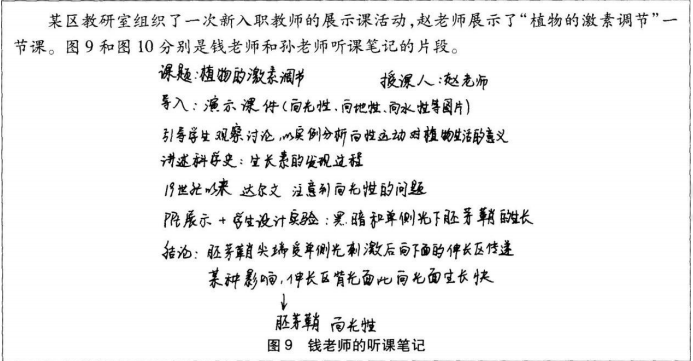 某区教研室组织了一次新入职教师的展示课活动,赵老师展示了“植物的激素调节”一
节课。图9和图10分别是钱老师和孙老师听课笔记的片段。
课题:植物的激素调节 授课人:赵老师
导入:演示课件(向光性、向地性、向水性等图片)
引导学生观察讨论,以实例分析向性运动对植物生活的意义
讲述科学史:生长素的发现过程
19世纪以来 达尔文 注意到向光性的问题
PPt展示+学生设计实验:黑暗和单侧光下胚芽鞘的生长
结论:胚芽鞘尖端受单侧光刺激后向下面的伸长区传递
某种影响,伸长区背光面比向光面生长快
↓
胚芽鞘 向光性
图9 钱老师的听课笔记